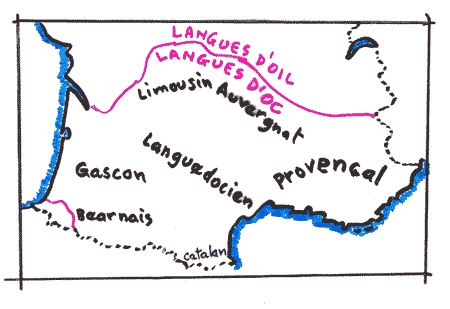 LANGUES D'OIL
LANGUES D'OC
Limousin
Auvergnat
Gascon
Languedocien
Provencal
Bearnais
catalan